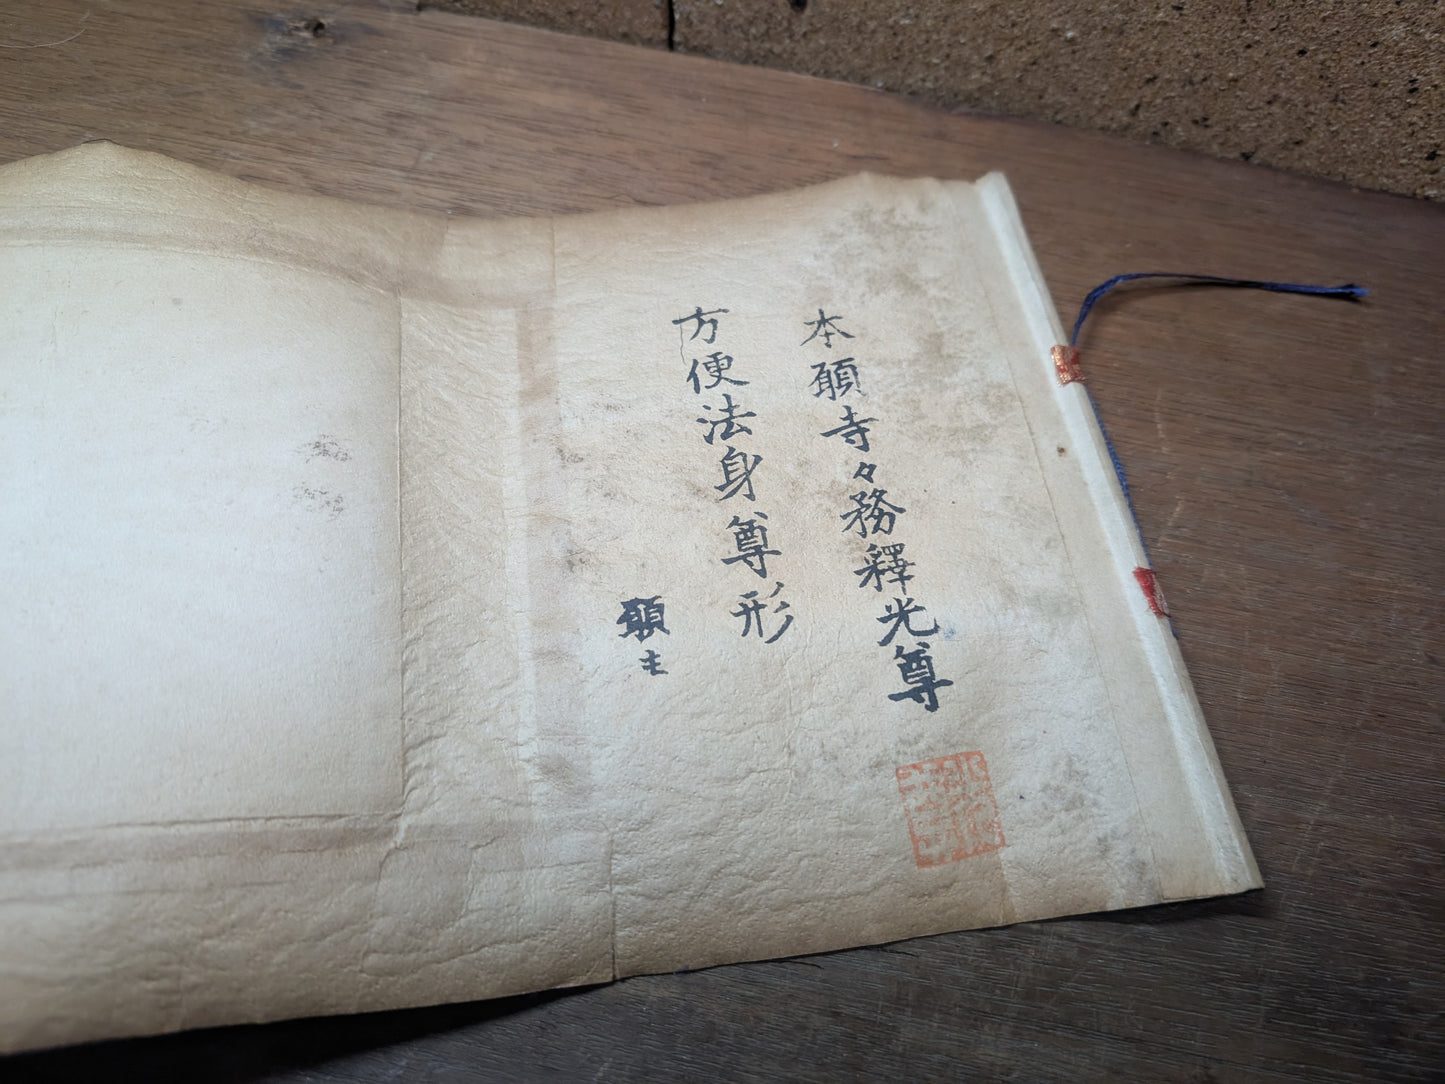 本願寺々務釋光尊
方便法身尊形
願主